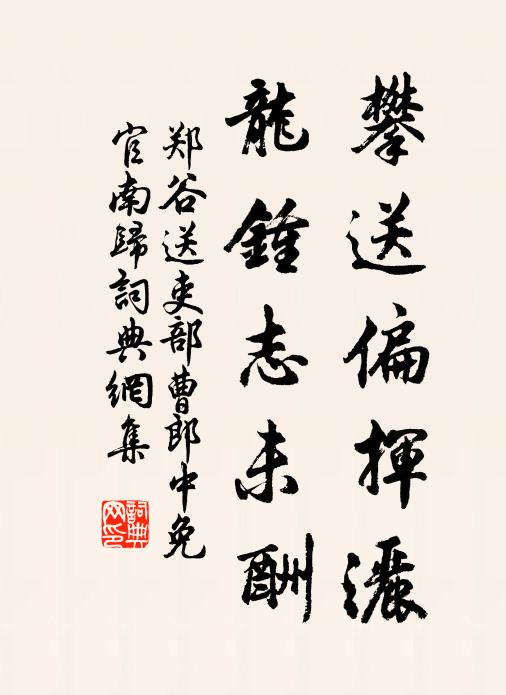 攀送偏揮灑
龍鍾志未酬
郑谷送吏部曹郎中免
官南歸詞典網集
詞典网印